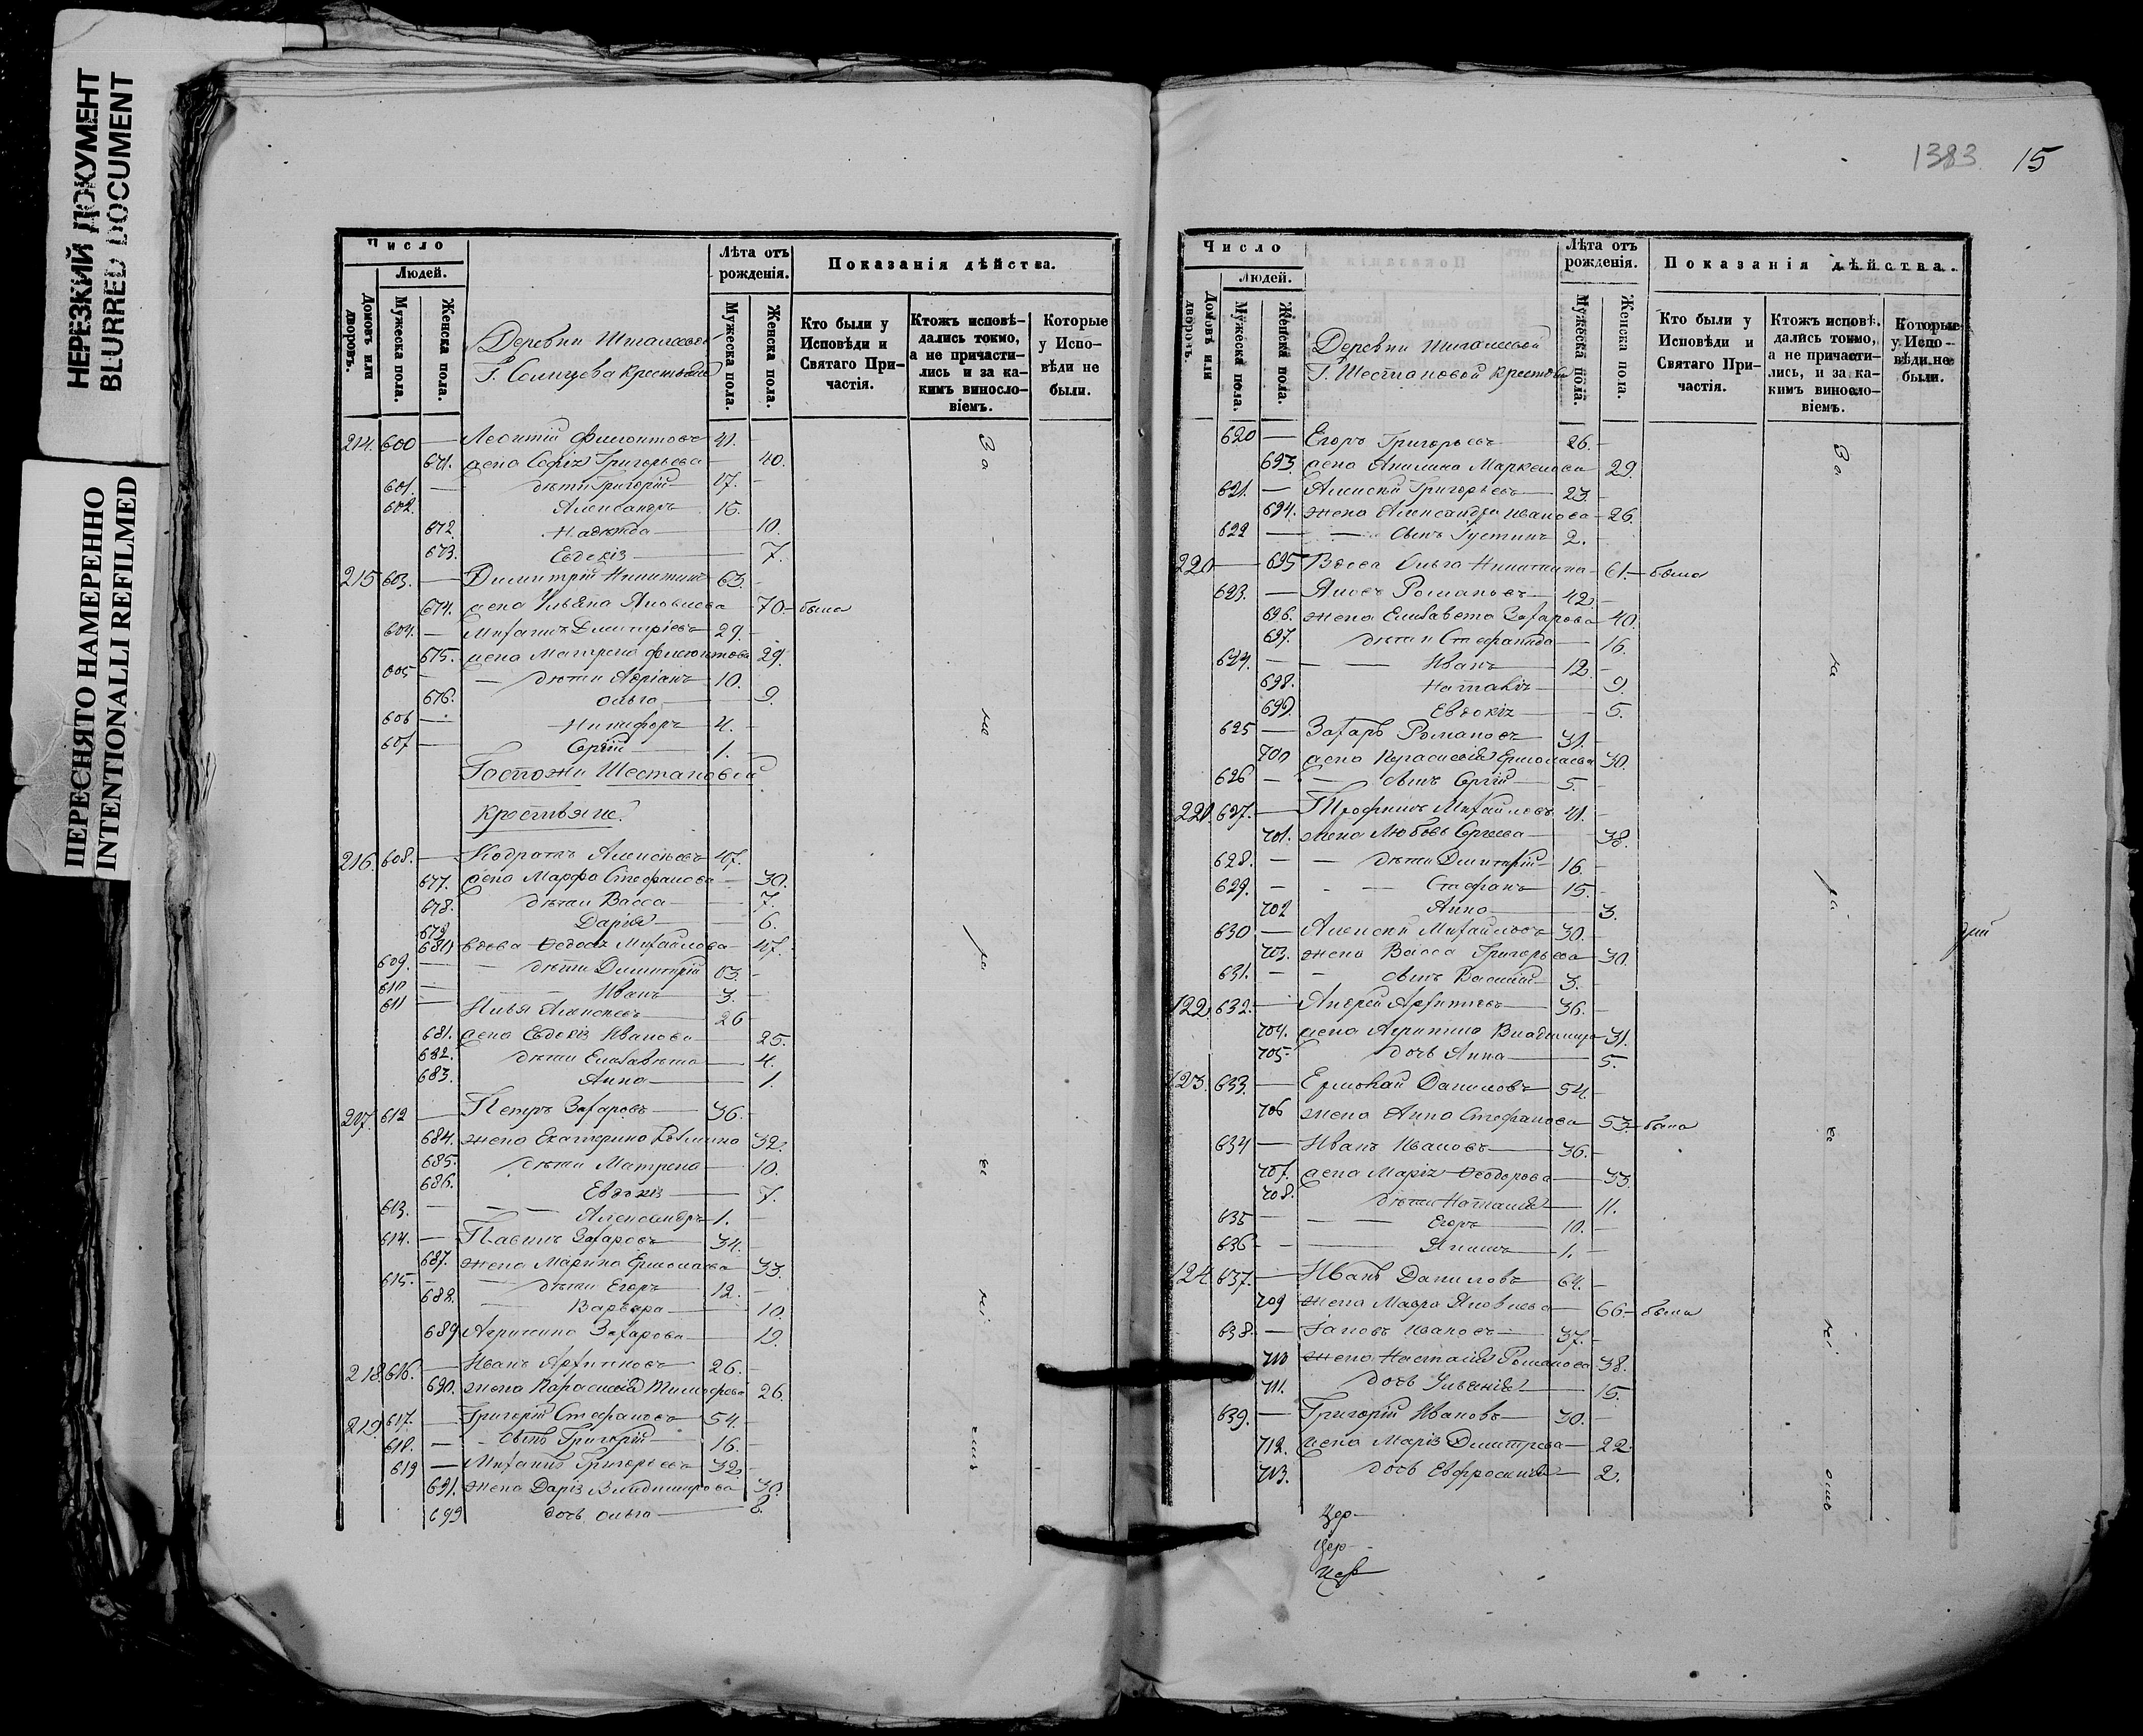 НЕРЕЗКИЙ ДОКУМЕНТ
BLURRED DOCUMENT
ПЕРЕСНЯТО НАМЕРЕННО
INTENTIONALLI REFILMED
Число
Людей.
Домовъ или дворовъ.
Мужеска пола.
Женска пола.
Деревни
Г. Солнцева крестьяне
Лѣта отъ рожденія.
Мужеска пола.
Женска пола.
Показанія дѣйства.
Кто были у Исповѣди и Святаго Причастія.
Ктожъ исповѣдались токмо, а не причастились и за какимъ винословіемъ.
Которые у Исповѣди не были.
214. 600 — Леонтій Филиповъ 41.
671. жена Софія Григорьева 40.
601. — дѣти Григорій 17.
602. Александръ 15.
672. Надежда 10.
673. Евдокія 7.
215 603. — Димитрій Никитинъ 63.
674. жена Ульяна Яковлева 70 — была
604. — Михаилъ Димитріевъ 29.
675. жена Матрена 29.
605 — дѣти Адріанъ 10.
676. Ольга 9.
606 — Никифоръ 4.
607 — Сергій 1.
Госпожи Шестаковой
крестьяне.
216. 608. — Кодратъ Алексѣевъ 47.
677. жена Марфа Стефанова 30.
678. дѣти Васса 7.
679 Дарія 6.
680 вдова Ѳедосія Михайлова 47.
609. — дѣти Димитрій 13.
610 — Иванъ 3.
611 — Илья Алексѣевъ 26
681. жена Евдокія Иванова 25.
682. дѣти Елисавета 4.
683. Анна 1.
217. 612 — Петръ Захаровъ 36.
684. жена Екатерина Козьмина 32.
685. дѣти Матрена 10.
686. Евдокія 7.
613. — Александръ 1.
614. — Павелъ Захаровъ 34.
687. жена Марина Ермолаева 33.
615. — дѣти Егоръ 12.
688. Варвара 10.
689 Агрипина Захарова 19.
218. 616. — Иванъ Архиповъ 26.
690. жена Параскевія Тимофеева 26
219. 617. — Григорій Стефановъ 54.
618. — сынъ Григорій 16.
619 — Михаилъ Григорьевъ 32.
691. жена Дарія Владимирова 30.
699 дочь Ольга 8.
1383 15
Число
Людей.
Домовъ или дворовъ.
Мужеска пола.
Женска пола.
Деревни
Г. Шестаковой крестьяне
Лѣта отъ рожденія.
Мужеска пола.
Женска пола.
Показанія дѣйства.
Кто были у Исповѣди и Святаго Причастія.
Ктожъ исповѣдались токмо, а не причастились, и за какимъ винословіемъ.
Которые у Исповѣди не были.
620 — Егоръ Григорьевъ 26.
693. жена Акилина Маркелова 29.
621. — Алексѣй Григорьевъ 23.
694. жена Александра Иванова 26.
622 — сынъ Густинъ 2.
220 — 695 Вдова Ольга Никитина 61. — была
623. — Яковъ Романовъ 42.
696. жена Елисавета Захарова 40.
697. дѣти Стефанида 16.
624. — Иванъ 12.
698. Наталія 9.
699. Евдокія 5.
625 — Захаръ Романовъ 31.
700 жена Параскевія Ермолаева 30.
626 — сынъ Сергій 5.
221. 627. — Трофимъ Михайловъ 41.
701. жена Любовь Сергеева 38.
628. — дѣти Димитрій 16.
629. — Стефанъ 15.
702 Анна 3.
630 — Алексѣй Михайловъ 30.
703. жена Васса Григорьева 30.
631. — сынъ Василій 3.
122. 632. — Андрей Архиповъ 36.
704. жена Агрипина Владимира 31.
705 дочь Анна 5.
123. 633. — Ермолай Даниловъ 54.
706 жена Анна Стефанова 53. — была
634 — Иванъ Ивановъ 36.
707. жена Марія Ѳеодорова 33.
708. дѣти Наталія 11.
635 — Егоръ 10.
636 — 1.
124 637. — Иванъ Даниловъ 64.
709 жена Мавра Яковлева 66 — была
638. — Іаковъ Ивановъ 37.
710 жена Настасія Романова 38.
711. дочь Ульянія 15.
639. — Григорій Ивановъ 30.
712. жена Марія Димитрева 22.
713. дочь Евфросинія 2.
Цер
Цер